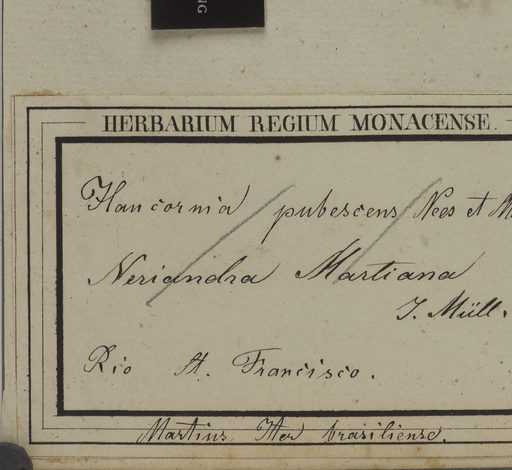 NG
HERBARIUM REGIUM MONACENSE.
Hancornia pubescens Nees et M
Neriandra Martiana
J. Müll.
Rio St. Francisco.
Martius Iter brasiliense.